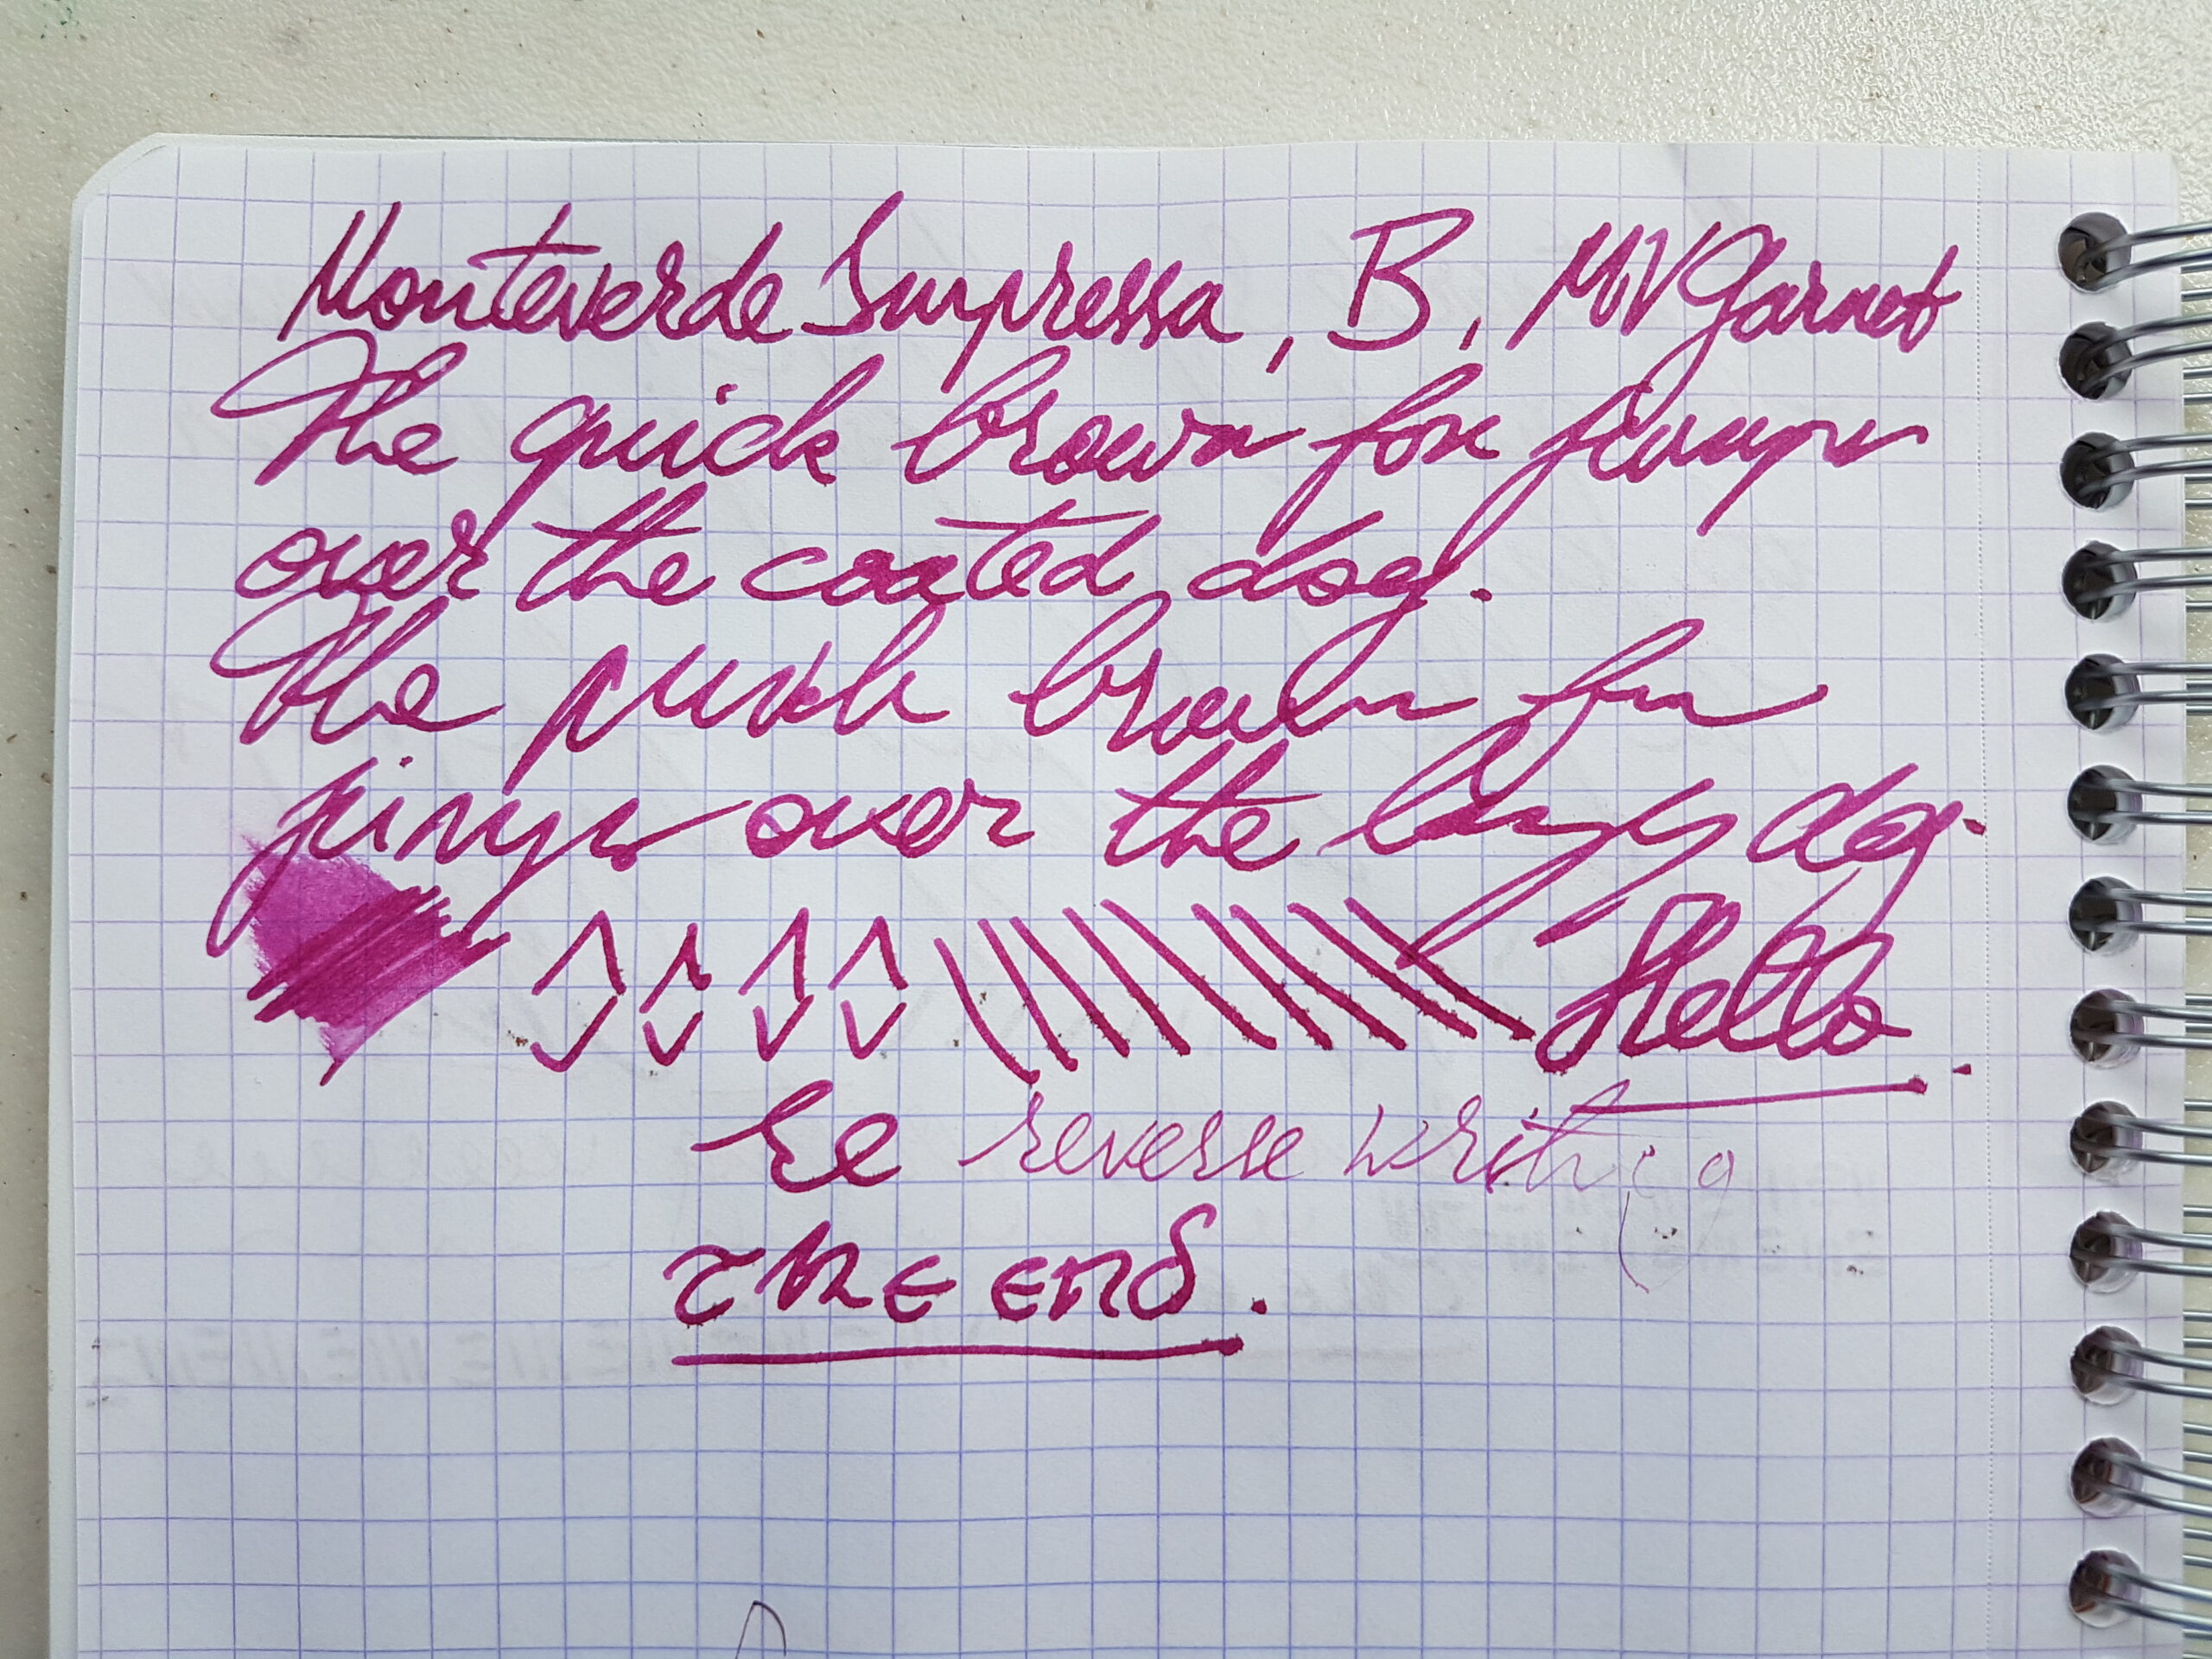 Monteverde Impressa, B, MV Garnet
The quick brown fox jumps
over the coated dog.
The quick brown fox
jumps over the lazy dog.
Hello.
reverse writing
THE END.